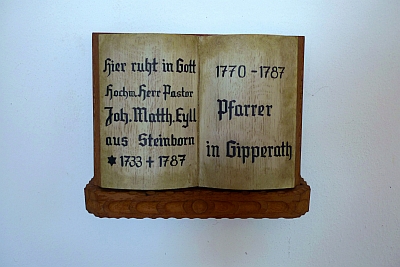 Hier ruht in Gott
Hochw. Herr Pastor
Joh. Matth. Eyll
aus Steinborn
✶ 1733 + 1787
1770 - 1787
Pfarrer
in Gipperath